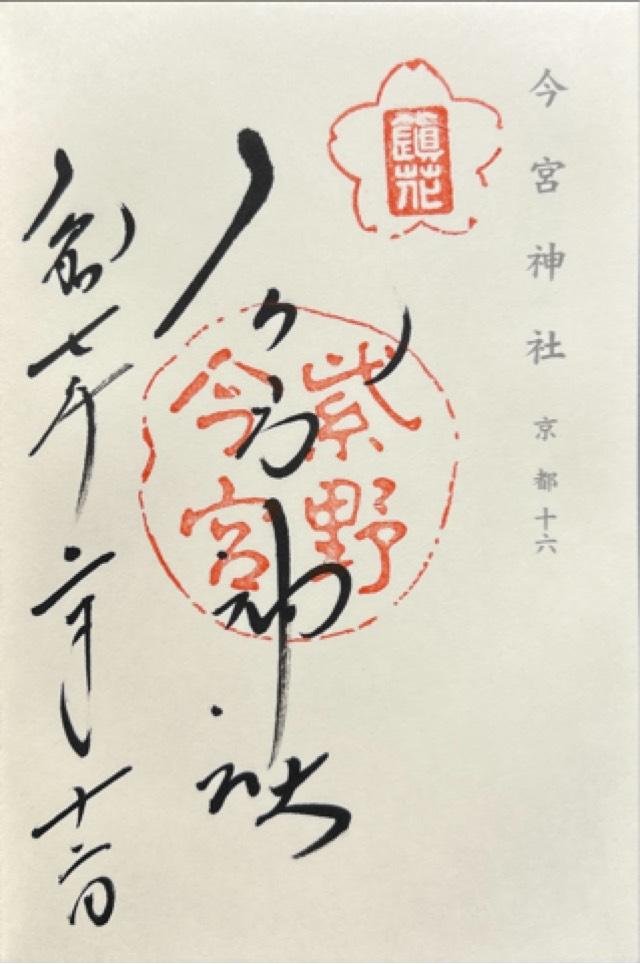 今宮神社 京都十六
鎮花
紫野
今宮
今宮神社
令和七年二月十六日